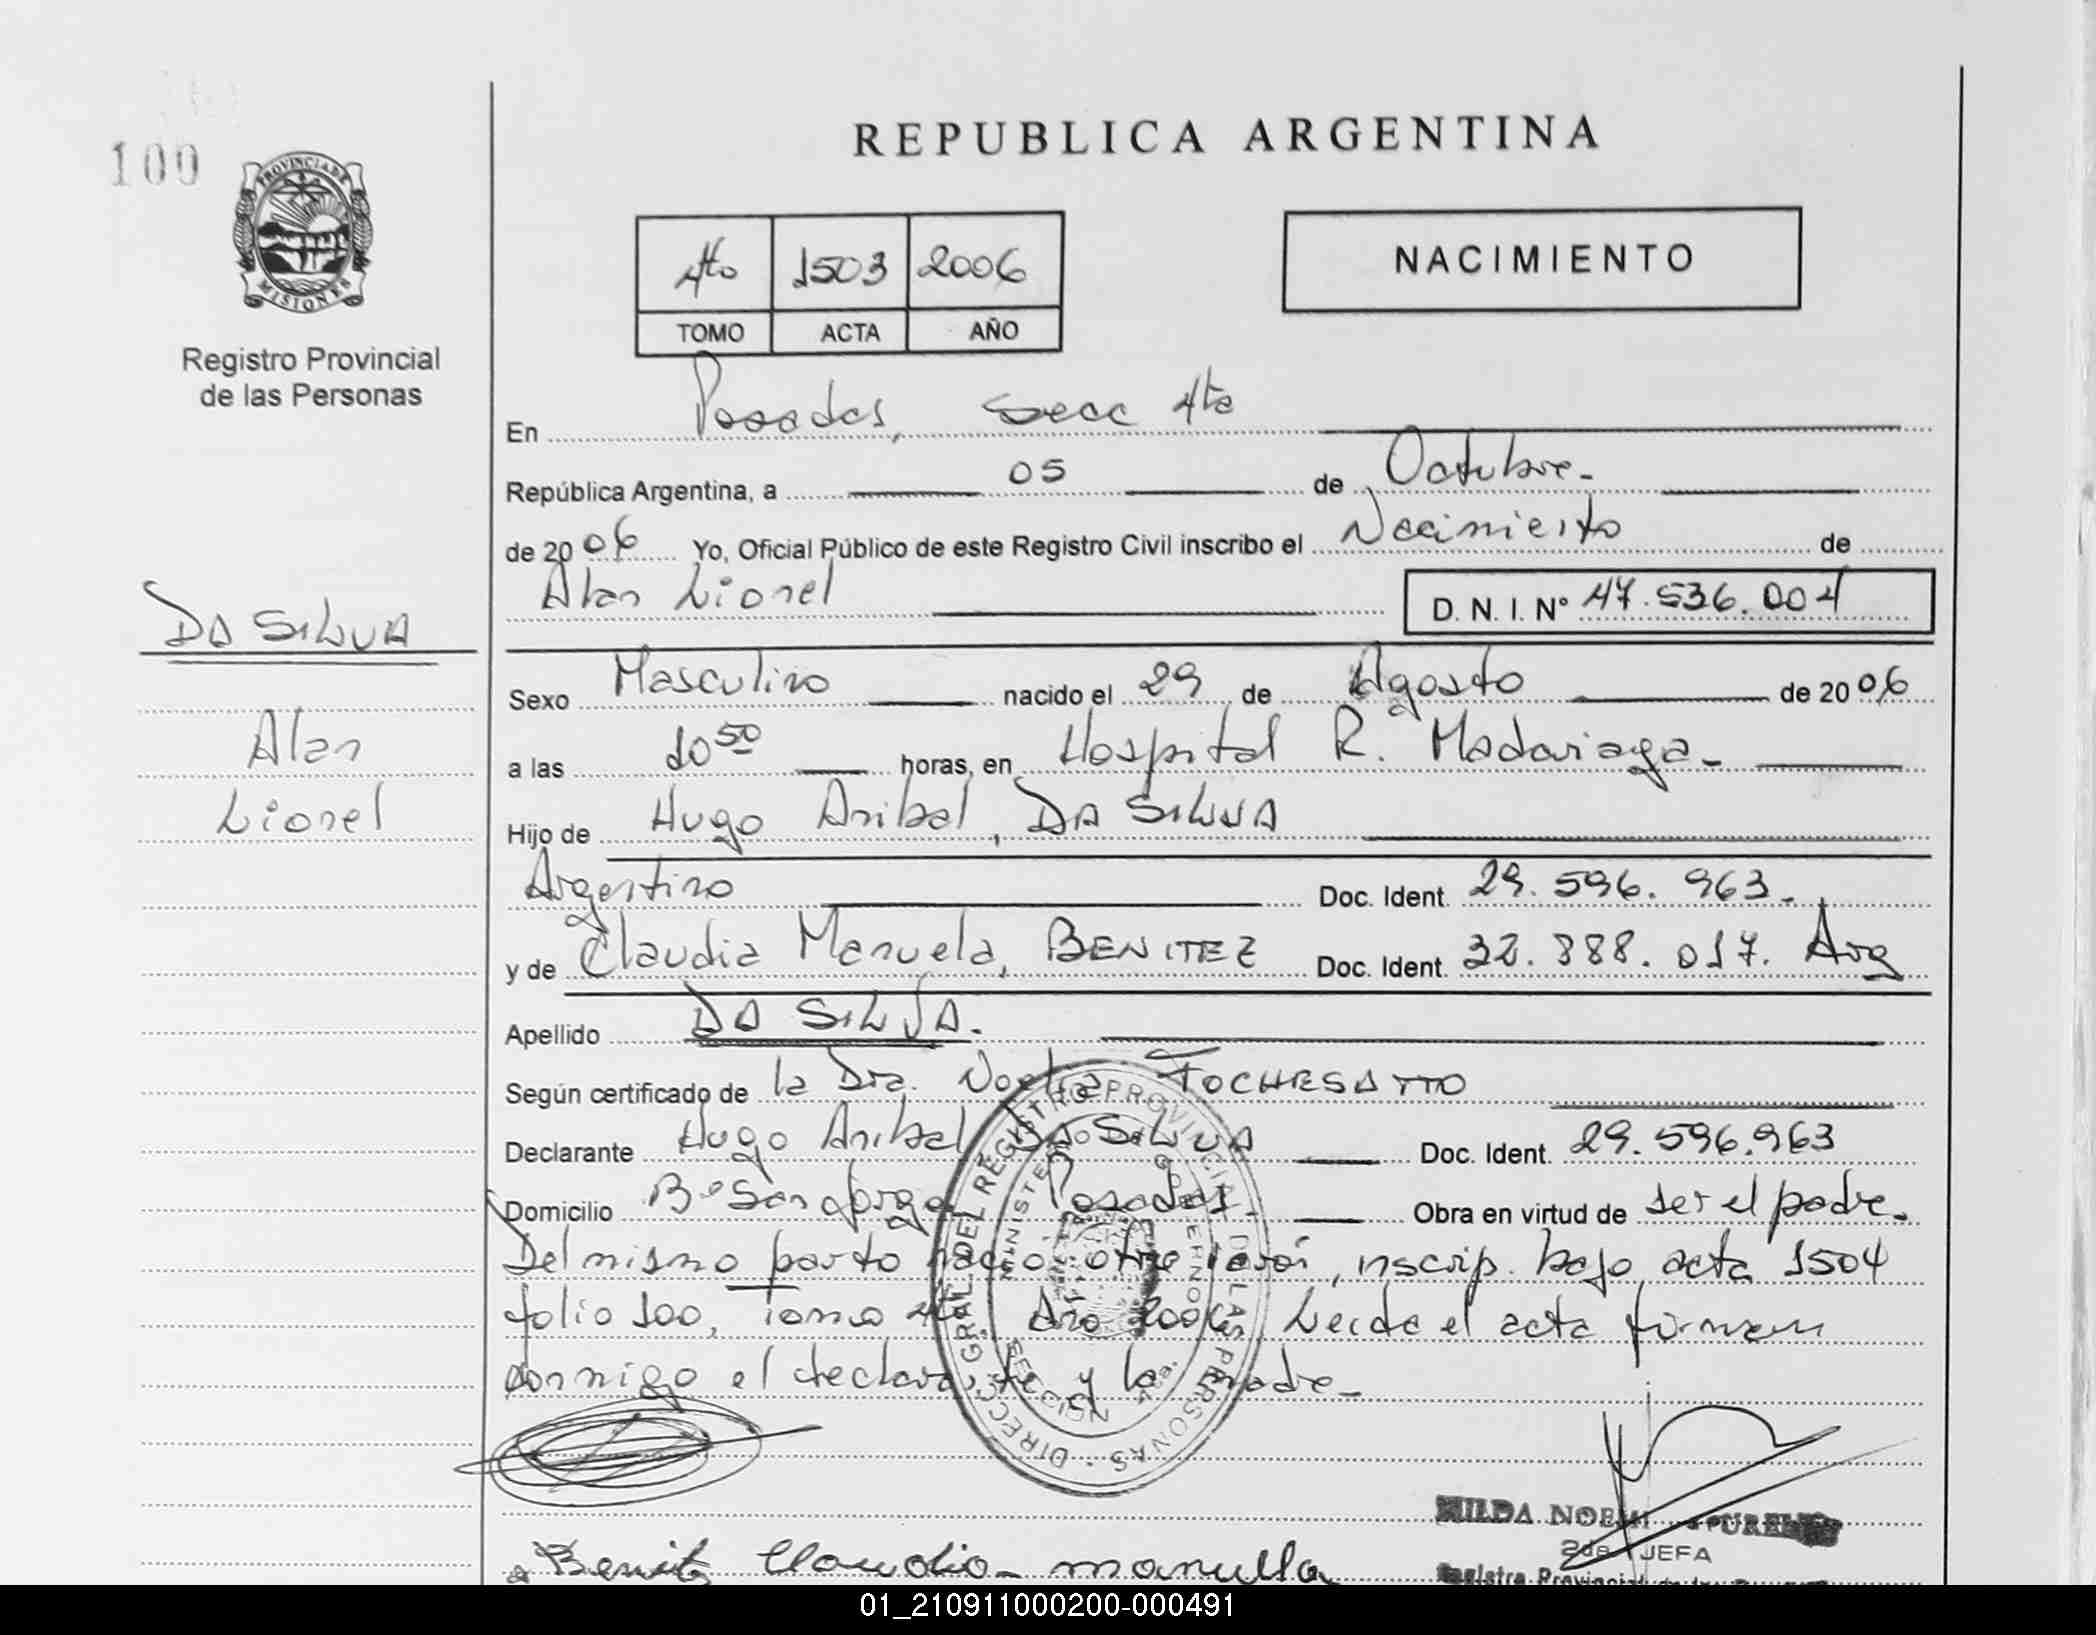 100
PROVINCIA DE
MISIONES
Registro Provincial
de las Personas
DA SILVA
Alan
Lionel
REPUBLICA ARGENTINA
4to 1503 2006
TOMO ACTA AÑO
NACIMIENTO
En Posadas, Secc 4ta
República Argentina, a 05 de Octubre.
de 2006 Yo, Oficial Público de este Registro Civil inscribo el Nacimiento de
Alan Lionel D. N. I. Nº 47.536.004
Sexo Masculino nacido el 29 de Agosto de 2006
a las 10 50 horas, en Hospital R. Madariaga-
Hijo de Hugo Anibal, DA SILVA
Argentino Doc. Ident. 29.596.963.-
y de Claudia Manuela, BENITEZ Doc. Ident. 32.888.017. Arg
Apellido DA SILVA.
Según certificado de la Dra. Noelia FOCHESATTO
Declarante Hugo Anibal DA SILVA Doc. Ident. 29.596.963
Domicilio Bº San Jorge Posadas. Obra en virtud de ser el padre.
Del mismo parto nació otro varón, inscrip. bajo acta 1504
folio 100, Tomo 4to Año 2006. Leida el acta firman
conmigo el declarante y la madre-
DIRECC. GRAL. DEL REGISTRO PROVINCIAL DE LAS PERSONAS
Benitz Claudia manuela
HILDA NOEMI
2da JEFA
Registro Provincial de las
01_210911000200-000491